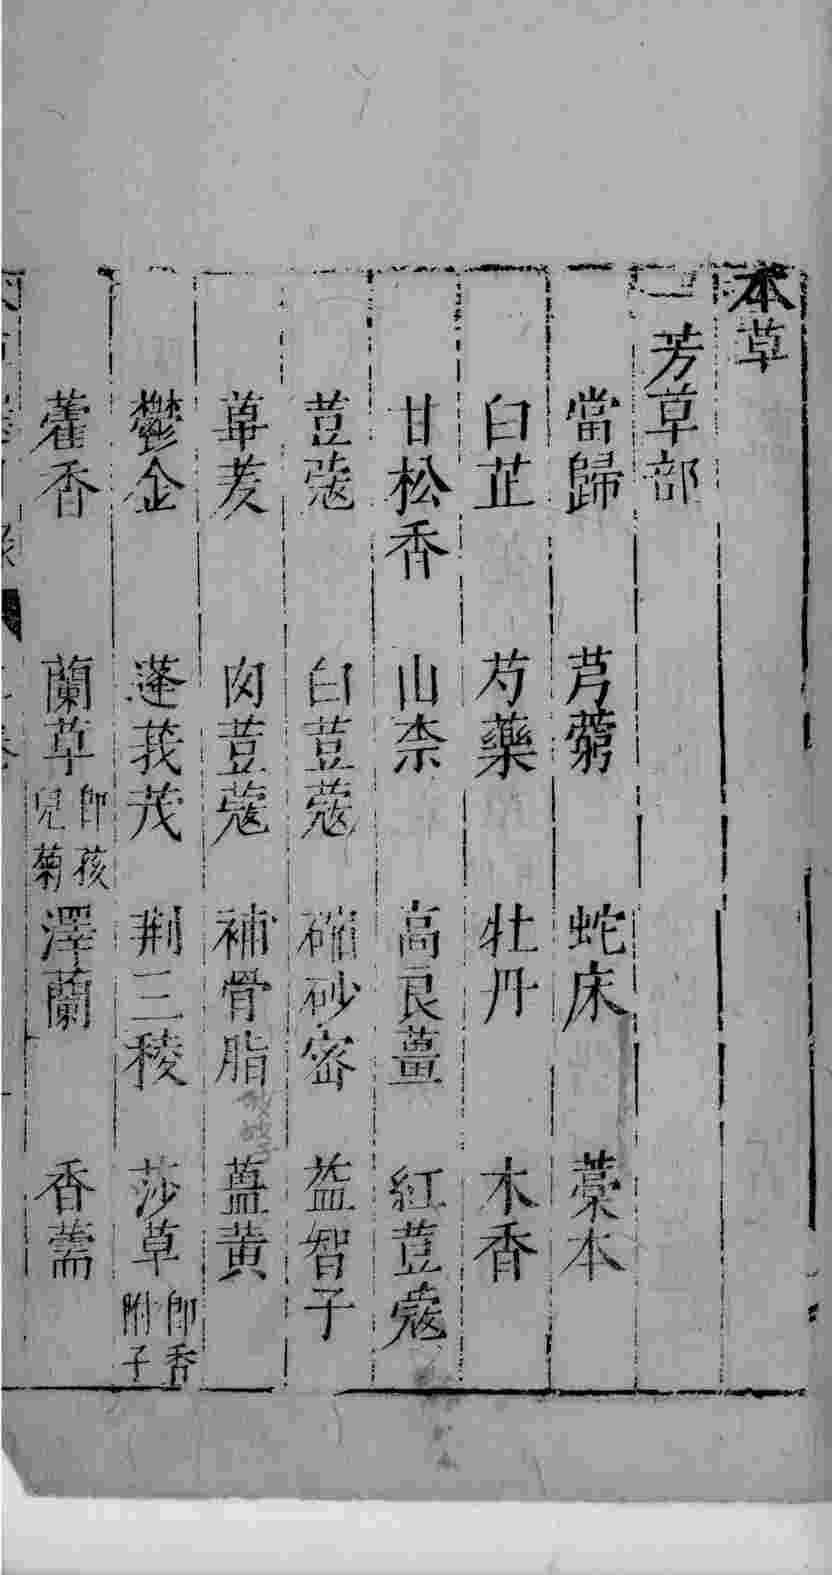 本草
芳草部
當歸 芎藭 蛇床 藁本
白芷 芍藥 牡丹 木香
甘松香 山柰 高良薑 紅荳蔻
荳蔻 白荳蔻 縮砂宻 益智子
蓽茇 肉荳蔻 補骨脂 薑黄
鬱金 蓬莪茂 荆三稜 莎草 即香附子
藿香 蘭草 即孩兒菊 澤蘭 香薷